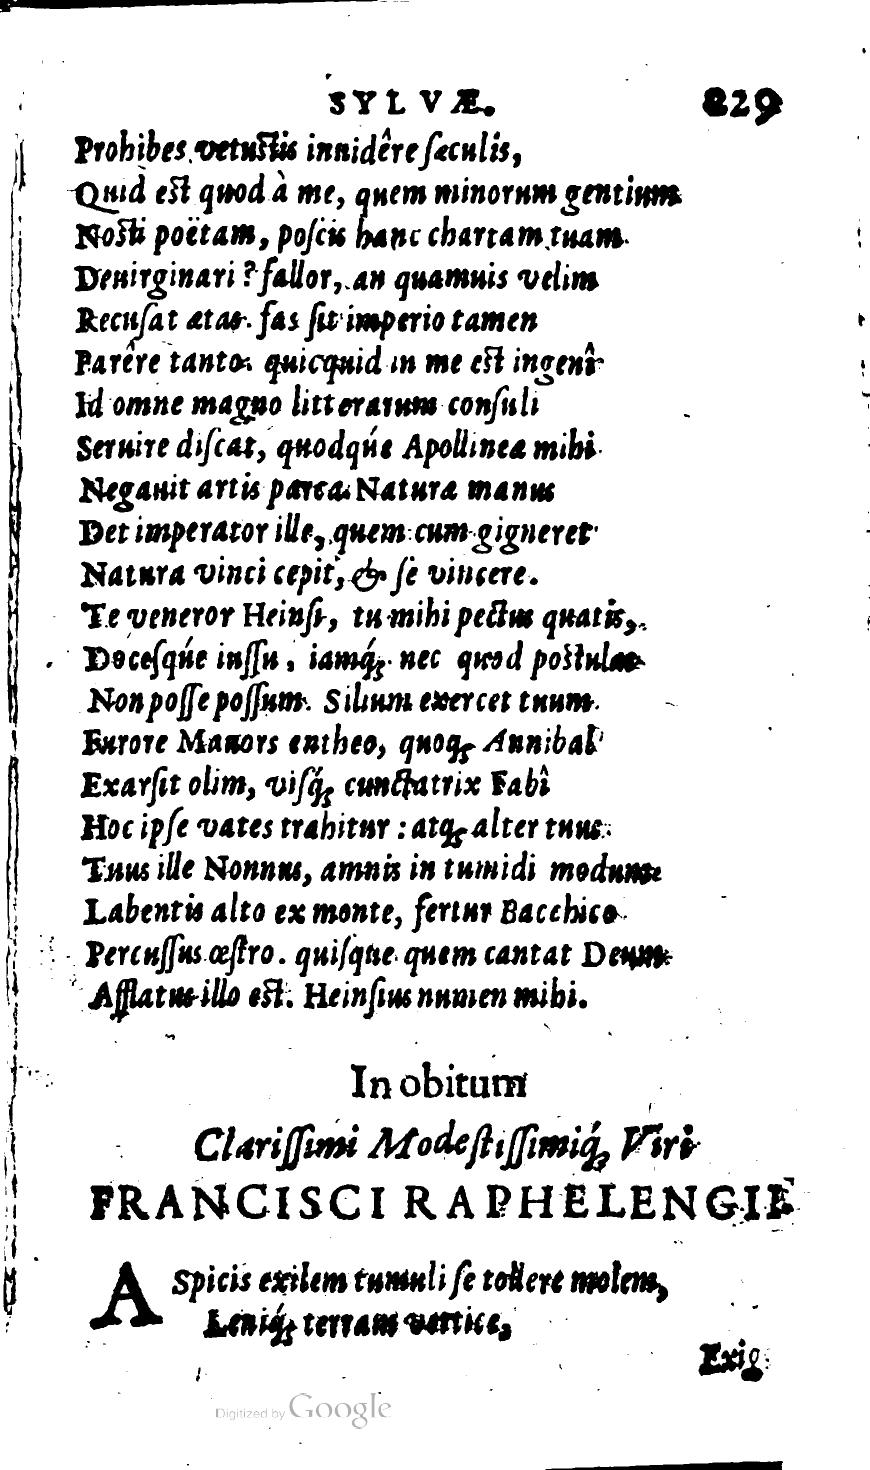 SYLVÆ. 829
Prohibes vetustis inuidêre sæculis,
Quid est quod à me, quem minorum gentium
Nosti poëtam, poscis hanc chartam tuam
Deuirginari? fallor, an quamuis velim
Recusat ætas. fas sit imperio tamen
Parêre tanto. quicquid in me est ingenî
Id omne magno litterarum consuli
Seruire discat, quodqúe Apollinea mihi
Negauit artis parca Natura manus
Det imperator ille, quem cum gigneret
Natura vinci cepit, & se vincere.
Te veneror Heinsi, tu mihi pectus quatis,
Docesqúe iussu, iamq́; nec quod postulas
Non posse possum. Silium exercet tuum
Furore Mauors entheo, quoq; Annibal
Exarsit olim, visq́; cunctatrix Fabî
Hoc ipse vates trahitur: atq; alter tuus
Tuus ille Nonnus, amnis in tumidi modum
Labentis alto ex monte, fertur Bacchico
Percussus œstro. quisque quem cantat Deum
Afflatus illo est. Heinsius numen mihi.
In obitum
Clarissimi Modestissimiq́; Viri
FRANCISCI RAPHELENGII
ASpicis exilem tumuli se tollere molem,
Leniq́; terram vertice,
Exig
Digitized by Google